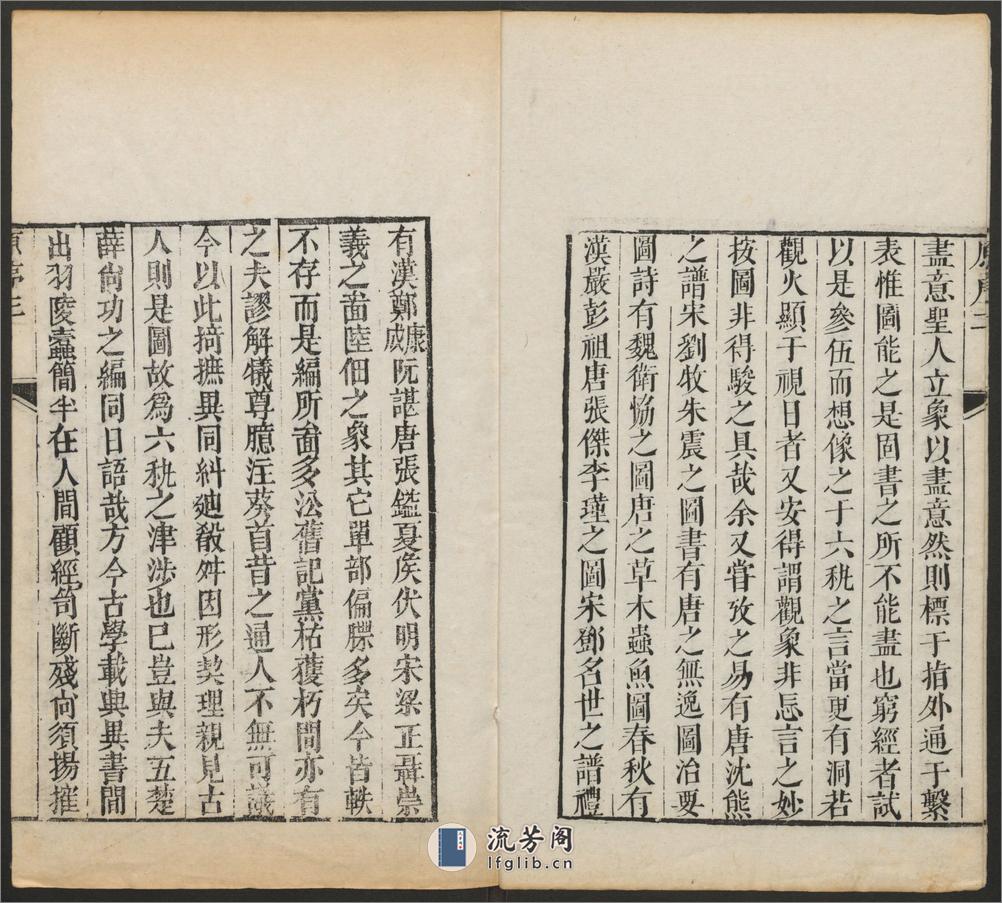 原序二
盡意聖人立象以盡意然則標于指外通于繫
表惟圖能之是固書之所不能盡也窮經者試
以是參伍而想像之于六秇之言當更有洞若
觀火顯于視日者又安得謂觀象非忘言之妙
按圖非得駿之具哉余又嘗攷之易有唐沈熊
之譜宋劉牧朱震之圖書有唐之無逸圖治要
圖詩有魏衛協之圖唐之草木蟲魚圖春秋有
漢嚴彭祖唐張傑李瑾之圖宋鄧名世之譜禮
有漢鄭康成阮諶唐張鎰夏矦伏明宋梁正聶崇
義之啚陸佃之象其它單部偏牒多矣今皆軼
不存而是編所啚多㳂舊記黨枯䕶朽間亦有
之夫謬解犧尊臆注葵首昔之通人不無可議
今以此掎摭異同糾𨒪殽舛因形契理親見古
人則是圖故為六秇之津涉也已豈與夫五楚
薛尙功之編同日語哉方今古學載典異書間
出羽陵蠹簡半在人間顧經笥斷殘尙須揚搉
原序三
流芳阁
lfglib.cn